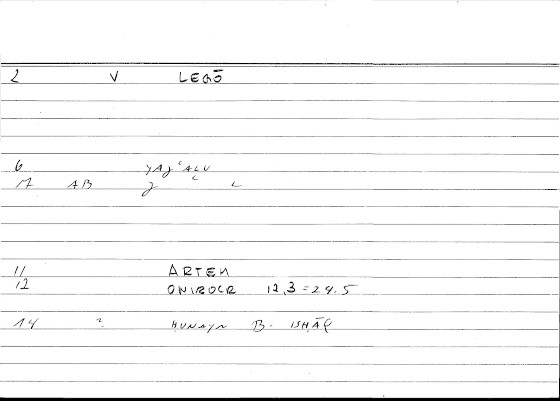 2 V LEGŌ
6 YAǦʿALU
17 AB
11 ARTEM
12 ONIROCR 12,3 = 24.5
14 ? ḤUNAYN B. ISḤĀQ